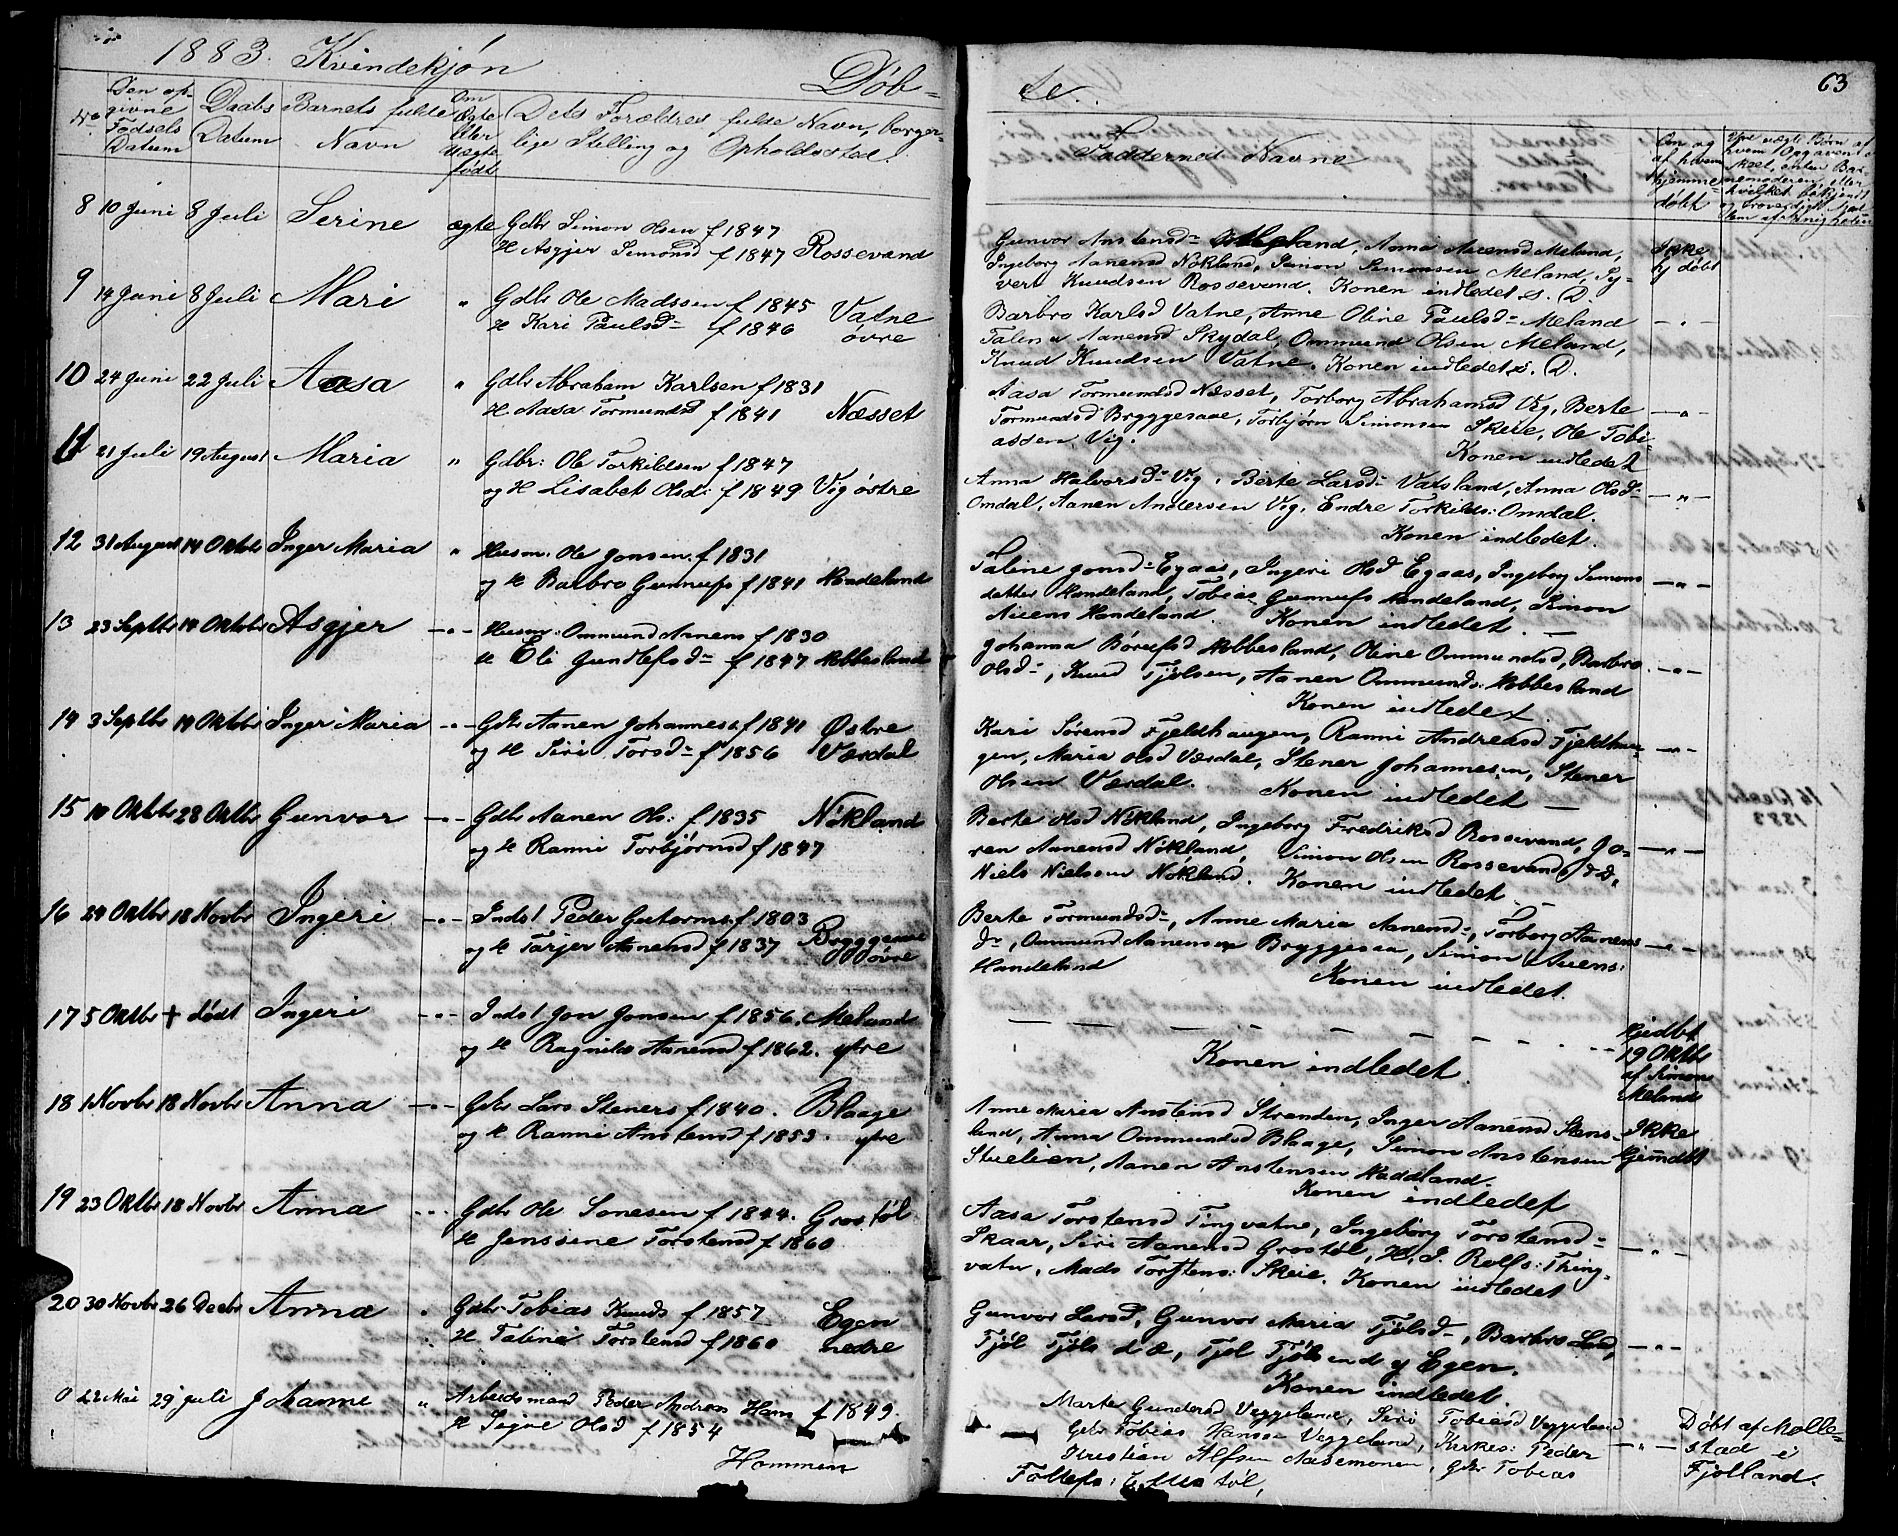 1883. Kvindekjøn
Døb-
No
Den op-
givne
Fødsels
Datum
Daabs
Datum
Barnets fulde
Navn
Om
Ægte
eller
Uægte
født
Dets Forældres fulde Navn, borger-
lige Stilling og Opholdssted.
8 10 Juni 8 Juli Serine ægte Gdbr Simon Olsen f 1847
H Asgjer Simonsd f 1847 Rossevand
9 14 Juni 8 Juli Mari " Gdbr Ole Madssen f 1845 Vatne
H Kari Paulsd f 1846 øvre
10 24 Juni 22 Juli Aasa " Gdbr Abraham Karlsen f 1831
H Aasa Tormundsd f 1841 Næsset
11 21 Juli 19 August Maria " Gdbr: Ole Torkildsen f 1847
og H Lisabet Olsd: f 1849 Vig østre
12 31 August 14 Oktbr Inger Maria " Husm: Ole Jonsen f 1831
og H Barbro Gunnufs f 1841 Handeland
13 23 Septbr 14 Oktobr Asgjer -"- Husm: Ommund Aanens f 1830
H Eli Gundlefsd f 1847 Mobbesland
14 3 Septbr 14 Oktbr Inger Maria -"- Gdbr Aanen Johannes: f 1841 Østre
og H Siri Torsd f 1856 Værdal
15 10 Oktbr 28 Oktbr Gunvor -"- Gdbr Aanen Ols: f 1835 Nökland
og H Ranni Torbjørnsd f 1847
16 24 Oktbr 18 Novbr Ingeri -"- Inds! Peder Gutorms f 1803 Bryggesaae
og H Tarjer Aanensd f 1837 øvre
17 5 Oktbr + dødt Ingeri -"- Inds! Jon Jonsen f 1856. Meland
og H Ragnild Aanensd f 1862. ytre
18 1 Novbr 18 Novbr Anna -"- Gdbr Lars Steners f 1840. Blaage
og H Ranni Anstensd f 1853. ytre
19 23 Oktbr 18 Novbr Anna -"- Gdbr Ole Sonesen f 1844. Grostøl
H Jenssine Torstensd f 1860
20 30 Novbr 26 Decbr Anna " Gdbr Tobias Knuds f 1857 Egen
H Taline Torstensd f 1860 nedre
0 22 Mai 29 Juli Johanne " Arbeidsmand Peder Andreas Hans f 1849.
H Sigve Olsd f 1854
Hommen
te.
63
Faddernes Navne
Om og
af hvem
hjemme-
døbt
Gunvor Anstensd Meland, Anna Aecensd Meland,
Ingeborg Aanensd Nökland, Simon Simonsen Meland, Sy-
vert Knudsen Rossevand. Konen indledet s. D.
Ikke
hj døbt
Barbro Karlsd Vatne, Anne Oline Paulsd Meland
Talina Aanensd Skydal, Ommund Olsen Meland,
Knud Knudsen Vatne. Konen indledet s. D.
-"-
Aasa Tormundsd Næsset, Torborg Abrahamsd Vig, Berte
Tormundsd Bryggesaae, Torbjørn Simonsen Skeie, Ole Tobi-
assen Vig.
Konen indledet
-"-
Anna Halvorsd Vig, Berte Larsd Vatsland, Anna Olsd
Omdal, Aanen Andersen Vig, Endre Torkilds: Omdal.
Konen indledet.
-"-
Taline Jonsd Egaas, Ingeri Olsd Egaas, Ingeborg Simons
datter Handeland, Tobias Gunnufs Handeland, Simon
Aicens Handeland. Konen indledet. —
-"-
Johanna Børufsd Mobbesland, Oline Ommundsd, Barbro
Olsd, Knud Tjølsen, Aanen Ommunds: Mobbesland
Konen indledet
-"-
Kari Sörensd Fjeldhaugen, Ranni Andreasd Fjeldhau-
gen, Maria Olsd Værdal, Stener Johannesen, Stener
Olsen Værdal. Konen indledet —
-"-
Berte Olsd Nökland, Ingeborg Fredriksd Rossevand, Go-
ren Aanensd Nökland, Simon Olsen Rossevand,
Niels Nielsen Nökland. Konen indledet
-"-
Berte Tormundsd, Anne Maria Aanensd, Torborg Aanens
d, Ommund Aanensen Bryggesaa, Simon Aicens:
Handeland
Konen indledet.
-"-
Konen indledet.
Hjdbt
19 Oktbr
af Simon
Meland
Anne Maria Anstensd Stranden, Inger Aanensd Stens-
land, Anna Ommundsd Blaage, Simon Anstensen
Stuelien, Aanen Anstensen Haddland.
Konen indledet
Ikke
hjemdbt
Aasa Torstensd Tingvatne, Ingeborg Torstensd
Skaar, Siri Aanensd Grostøl, H. J. Rolfs: Thing-
vatn, Mads Torstens: Skeie. Konen indledet
-"-
Gunvor Larsd, Gunvor Maria Tjølsd, Barbro Lasd,
Tjøl Tjøls d.æ, Tjøl Tjøls end y Egen.
Konen indledet
-"-
Marte Gundersd Veggeland, Siri Tobiasd Veggeland
Gdbr Tobias Hanssen Veggeland, Kirkes: Peder
Kristian Alfsen Aasemonen, Gdbr Tobias
Tollefs:
-"-
Døbt af Molle-
stad i
Fjotland.